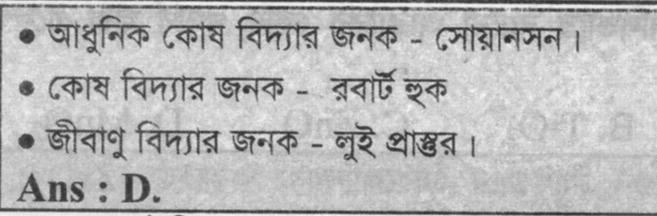 • আধুনিক কোষ বিদ্যার জনক - সোয়ানসন।
• কোষ বিদ্যার জনক - রবার্ট হুক
• জীবাণু বিদ্যার জনক - লুই প্রাস্তুর।
Ans : D.